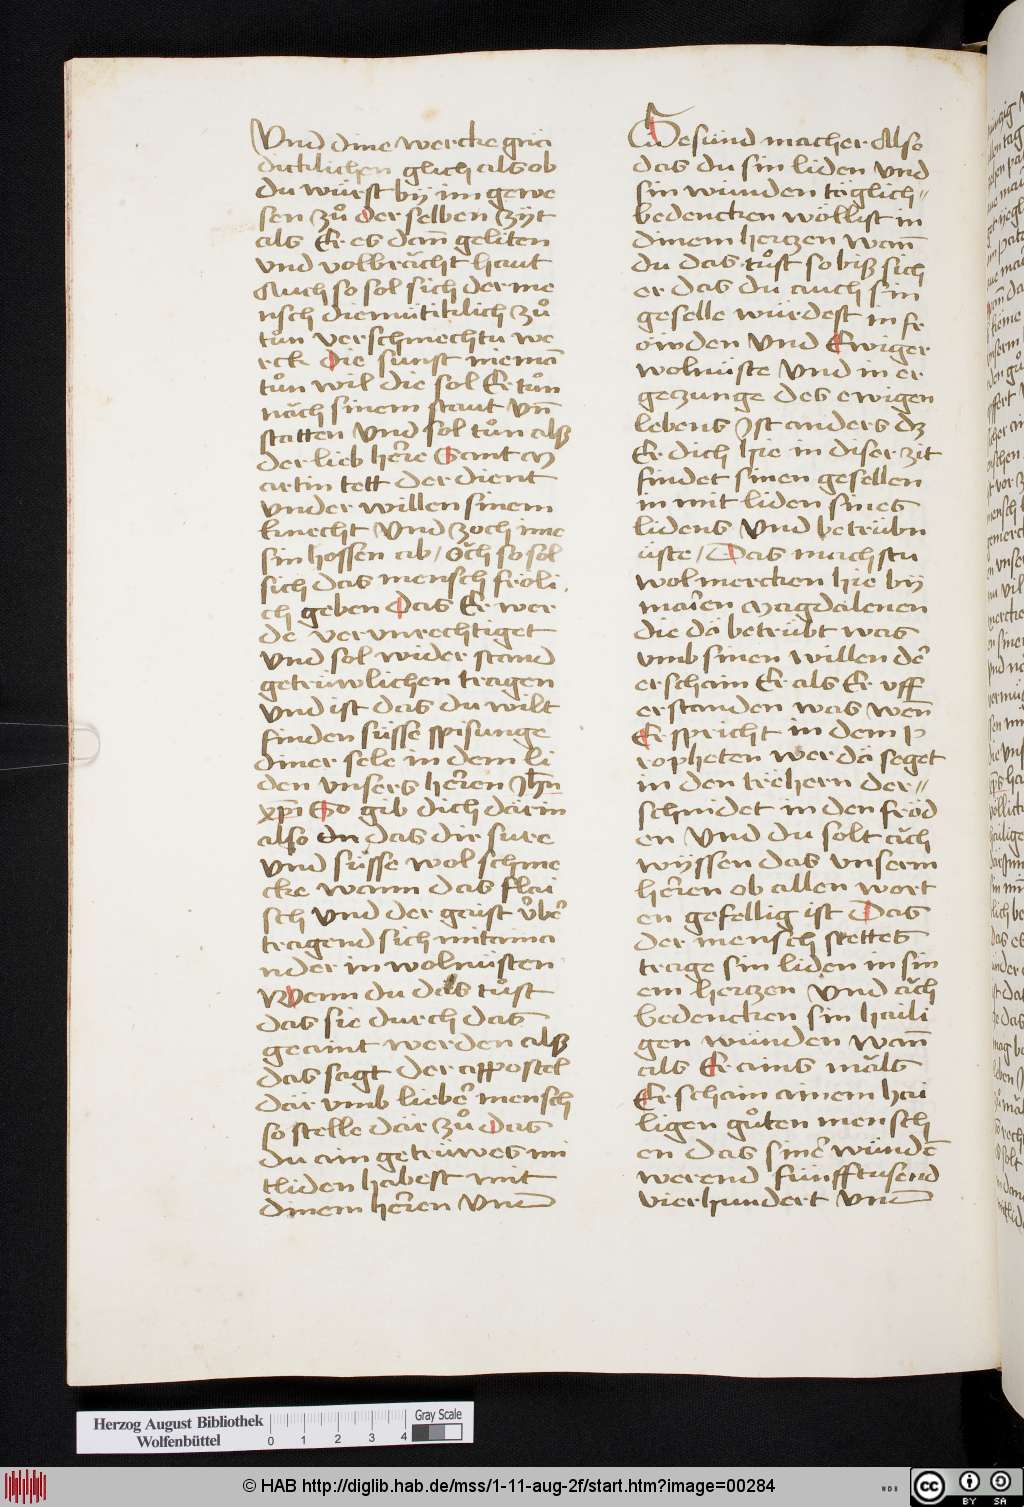 Vnd dine wercke gnä
dicklichen glich als ob
du würst bÿ im gewe
sen zů der selben zÿt
als Er es dañ geliten
vnd volbrächt haut
Auch so sol sich der me
nsch diemüttiklich zů
tůn verschmechtu we
rck die sunst niemã
tůn wil die sol Er tůn
näch sinem staut vñ
statten Vnd sol tůn alß
der lieb heꝛe Sant M
artin tett der dient
vnder willen sinem
knecht Vnd zoch ime
sin hossen ab / öch so sol
sich das mensch fröli
ch geben Das Er wer
de vervnrechtiget
vnd sol wider stand
getrüwlichen tragen
Vnd ist das du wilt
finden süsse spisunge
diner sele in dem li
den vnsers heꝛen Jhñ
xp̃i So gib dich därin
also dn das dir sure
vnd süsse wol schme
cke wann das flai
sch vnd der gaist v̊ber
tragend sich mitaina
nder in wolnüsten
Wenn du das tůst
das sie durch das
geaint werden alß
das sagt der appostel
där vmb lieber mensch
so stelle där zů das
du ain getrüwes mi
tliden habest mit
dinem heꝛen vnd
Gesund macher Also
das du sin liden vnd
sin wunden täglich
bedencken wöllist in
dinem hertzen wañ
du das tůst so biß sich
er das du auch sin
geselle würdest in fr
öwden vnd Ewiger
wolnüste Vnd in er
geczunge des ewigen
lebens Ist anders dz
Er dich hie in diser zit
findet sinen gesellen
in mit liden sines
lidens vnd betrübn
üste / Das mach stu
wol mercken hie bÿ
marien Magdalenen
die dä betrübt was
vmb sinen willen der
erschain Er als Er vff
erstanden was weñ
Er spricht in dem p
ropheten wer dä seget
in den trëhern der
schnidet in den fröd
en Vnd du solt äch
wÿssen das vnserm
heꝛen ob allen wort
en gefellig ist Das
der mensch stettes
trage sin liden in sin
em hertzen Vnd äch
bedencken sin haili
gen wunden wañ
als Er ains mäls
Er schain ainem hai
ligen gůten mensch
en das siner wundẽ
werend fünfftusend
vierhundert vnd
Herzog August Bibliothek
Wolfenbüttel
0 1 2 3 4
Gray Scale
© HAB http://diglib.hab.de/mss/1-11-aug-2f/start.htm?image=00284
WDB
cc BY SA